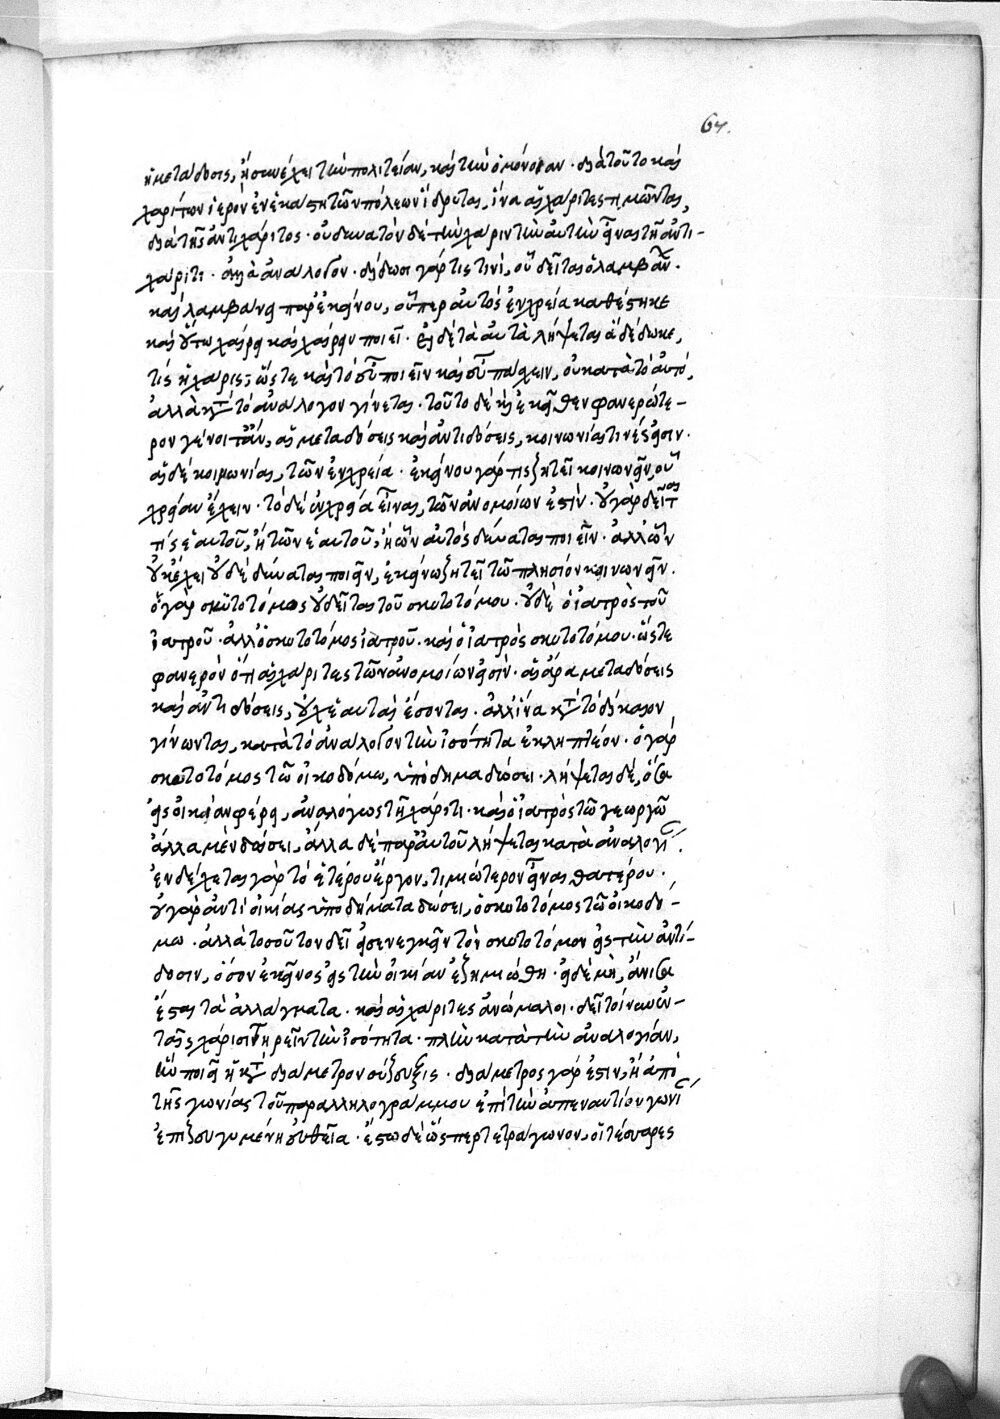 67.
ἡ μετάδοσις, ἡ συνέχει τὴν πολιτείαν, καὶ τὴν ὁμόνοιαν · διὰ τοῦτο καὶ
χαρίτων ἱερὸν ἐν ἑκάστη τῶν πόλεων ἵδρυται, ἵνα αἱ χάριτες τιμῶνται,
διὰ τῆς ἀντιχάριτος · οὐ δυνατὸν δὲ τὴν χάριν τὴν αὐτὴν εἶναι τῆ ἀντι-
χάριτι · ἀλλὰ ἀνάλογον · δίδωσι γάρ τις τινὶ, οὗ δεῖται ὁ λαμβάνων ·
καὶ λαμβάνει παρ' ἐκείνου, οὗπερ αὐτὸς ἐν χρεία καθέστηκε
καὶ οὕτω χαίρει καὶ χαίρειν ποιεῖ · εἰ δὲ τὰ αὐτὰ λήψεται ἃ δέδωκε,
τίς ἡ χάρις; ὥστε καὶ τὸ εὖ ποιεῖν καὶ εὖ πάσχειν, οὐ κατὰ τὸ αὐτό,
ἀλλὰ κατὰ τὸ ἀνάλογον γίνεται · τοῦτο δὲ κἀκεῖθεν φανερώτε-
ρον γένοιτ' ἂν, αἱ μεταδόσεις καὶ ἀντιδόσεις, κοινωνίαι τινές εἰσιν ·
αἱ δὲ κοινωνίαι, τῶν ἐν χρεία · ἐκείνου γάρ τις ζητεῖ κοινωνεῖν, οὗ
χρείαν ἔχειν · τὸ δὲ ἐν χρεία εἶναι, τῶν ἀνομοίων ἐστίν · οὐ γὰρ δεῖται
τίς ἑαυτοῦ, ἢ τῶν ἑαυτοῦ, ἢ ὧν αὐτὸς δύναται ποιεῖν · ἀλλ' ὧν
οὐκ ἔχει οὐδὲ δύναται ποιεῖν, ἐκείνω ζητεῖ τῶ πλησίον κοινωνεῖν ·
ὁ γὰρ σκυτοτόμος οὐ δεῖται τοῦ σκυτοτόμου · οὐδὲ ὁ ἰατρὸς τοῦ
ἰατροῦ · ἀλλ' ὁ σκυτοτόμος ἰατροῦ · καὶ ὁ ἰατρὸς σκυτοτόμου · ὥστε
φανερὸν ὅτι αἱ χάριτες τῶν ἀνομοίων εἰσίν · αἱ ἄρα μεταδόσεις
καὶ ἀντιδόσεις, οὐχὶ αὑταὶ ἔσονται · ἀλλ' ἵνα κατὰ τὸ δίκαιον
γίνωνται, κατὰ τὸ ἀνάλογον τὴν ἰσότητα ἐκληπτέον · ὁ γὰρ
σκυτοτόμος τῶ οἰκοδόμω, ὑπόδημα δώσει · λήψεται δὲ, ὅσα
εἰς οἰκίαν φέρει, ἀναλόγως τῆ χάριτι · καὶ ὁ ἰατρὸς τῶ γεωργῶ
ἄλλα μὲν δώσει, ἄλλα δὲ παρ' αὐτοῦ λήψεται κατὰ ἀναλογίαν.
ἐνδέχεται γὰρ τὸ ἑτέρου ἔργον, τιμιώτερον εἶναι θατέρου ·
οὐ γὰρ ἀντὶ οἰκίας ὑποδήματα δώσει, ὁ σκυτοτόμος τῶ οἰκοδό-
μω · ἀλλὰ τοσοῦτον δεῖ εἰσενεγκεῖν τὸν σκυτοτόμον εἰς τὴν ἀντί-
δοσιν, ὅσον ἐκεῖνος εἰς τὴν οἰκίαν ἐζημιώθη · εἰ δὲ μὴ, ἄνισα
ἔσται τὰ ἀλλάγματα · καὶ αἱ χάριτες ἀνώμαλοι · δεῖ τοίνυν ἐν
ταῖς χάρισι τηρεῖν τὴν ἰσότητα · πλὴν κατὰ τὴν ἀναλογίαν,
ἣν ποιεῖ ἡ κατὰ διάμετρον σύζευξις · διάμετρος γάρ ἐστιν, ἡ ἀπὸ
τῆς γωνίας τοῦ παραλληλογράμμου ἐπὶ τὴν ἀπεναντίου γωνίαν
ἐπιζευγυμένη εὐθεῖα · ἔστω δὲ ὥσπερ τετράγωνον, οἱ τέσσαρες